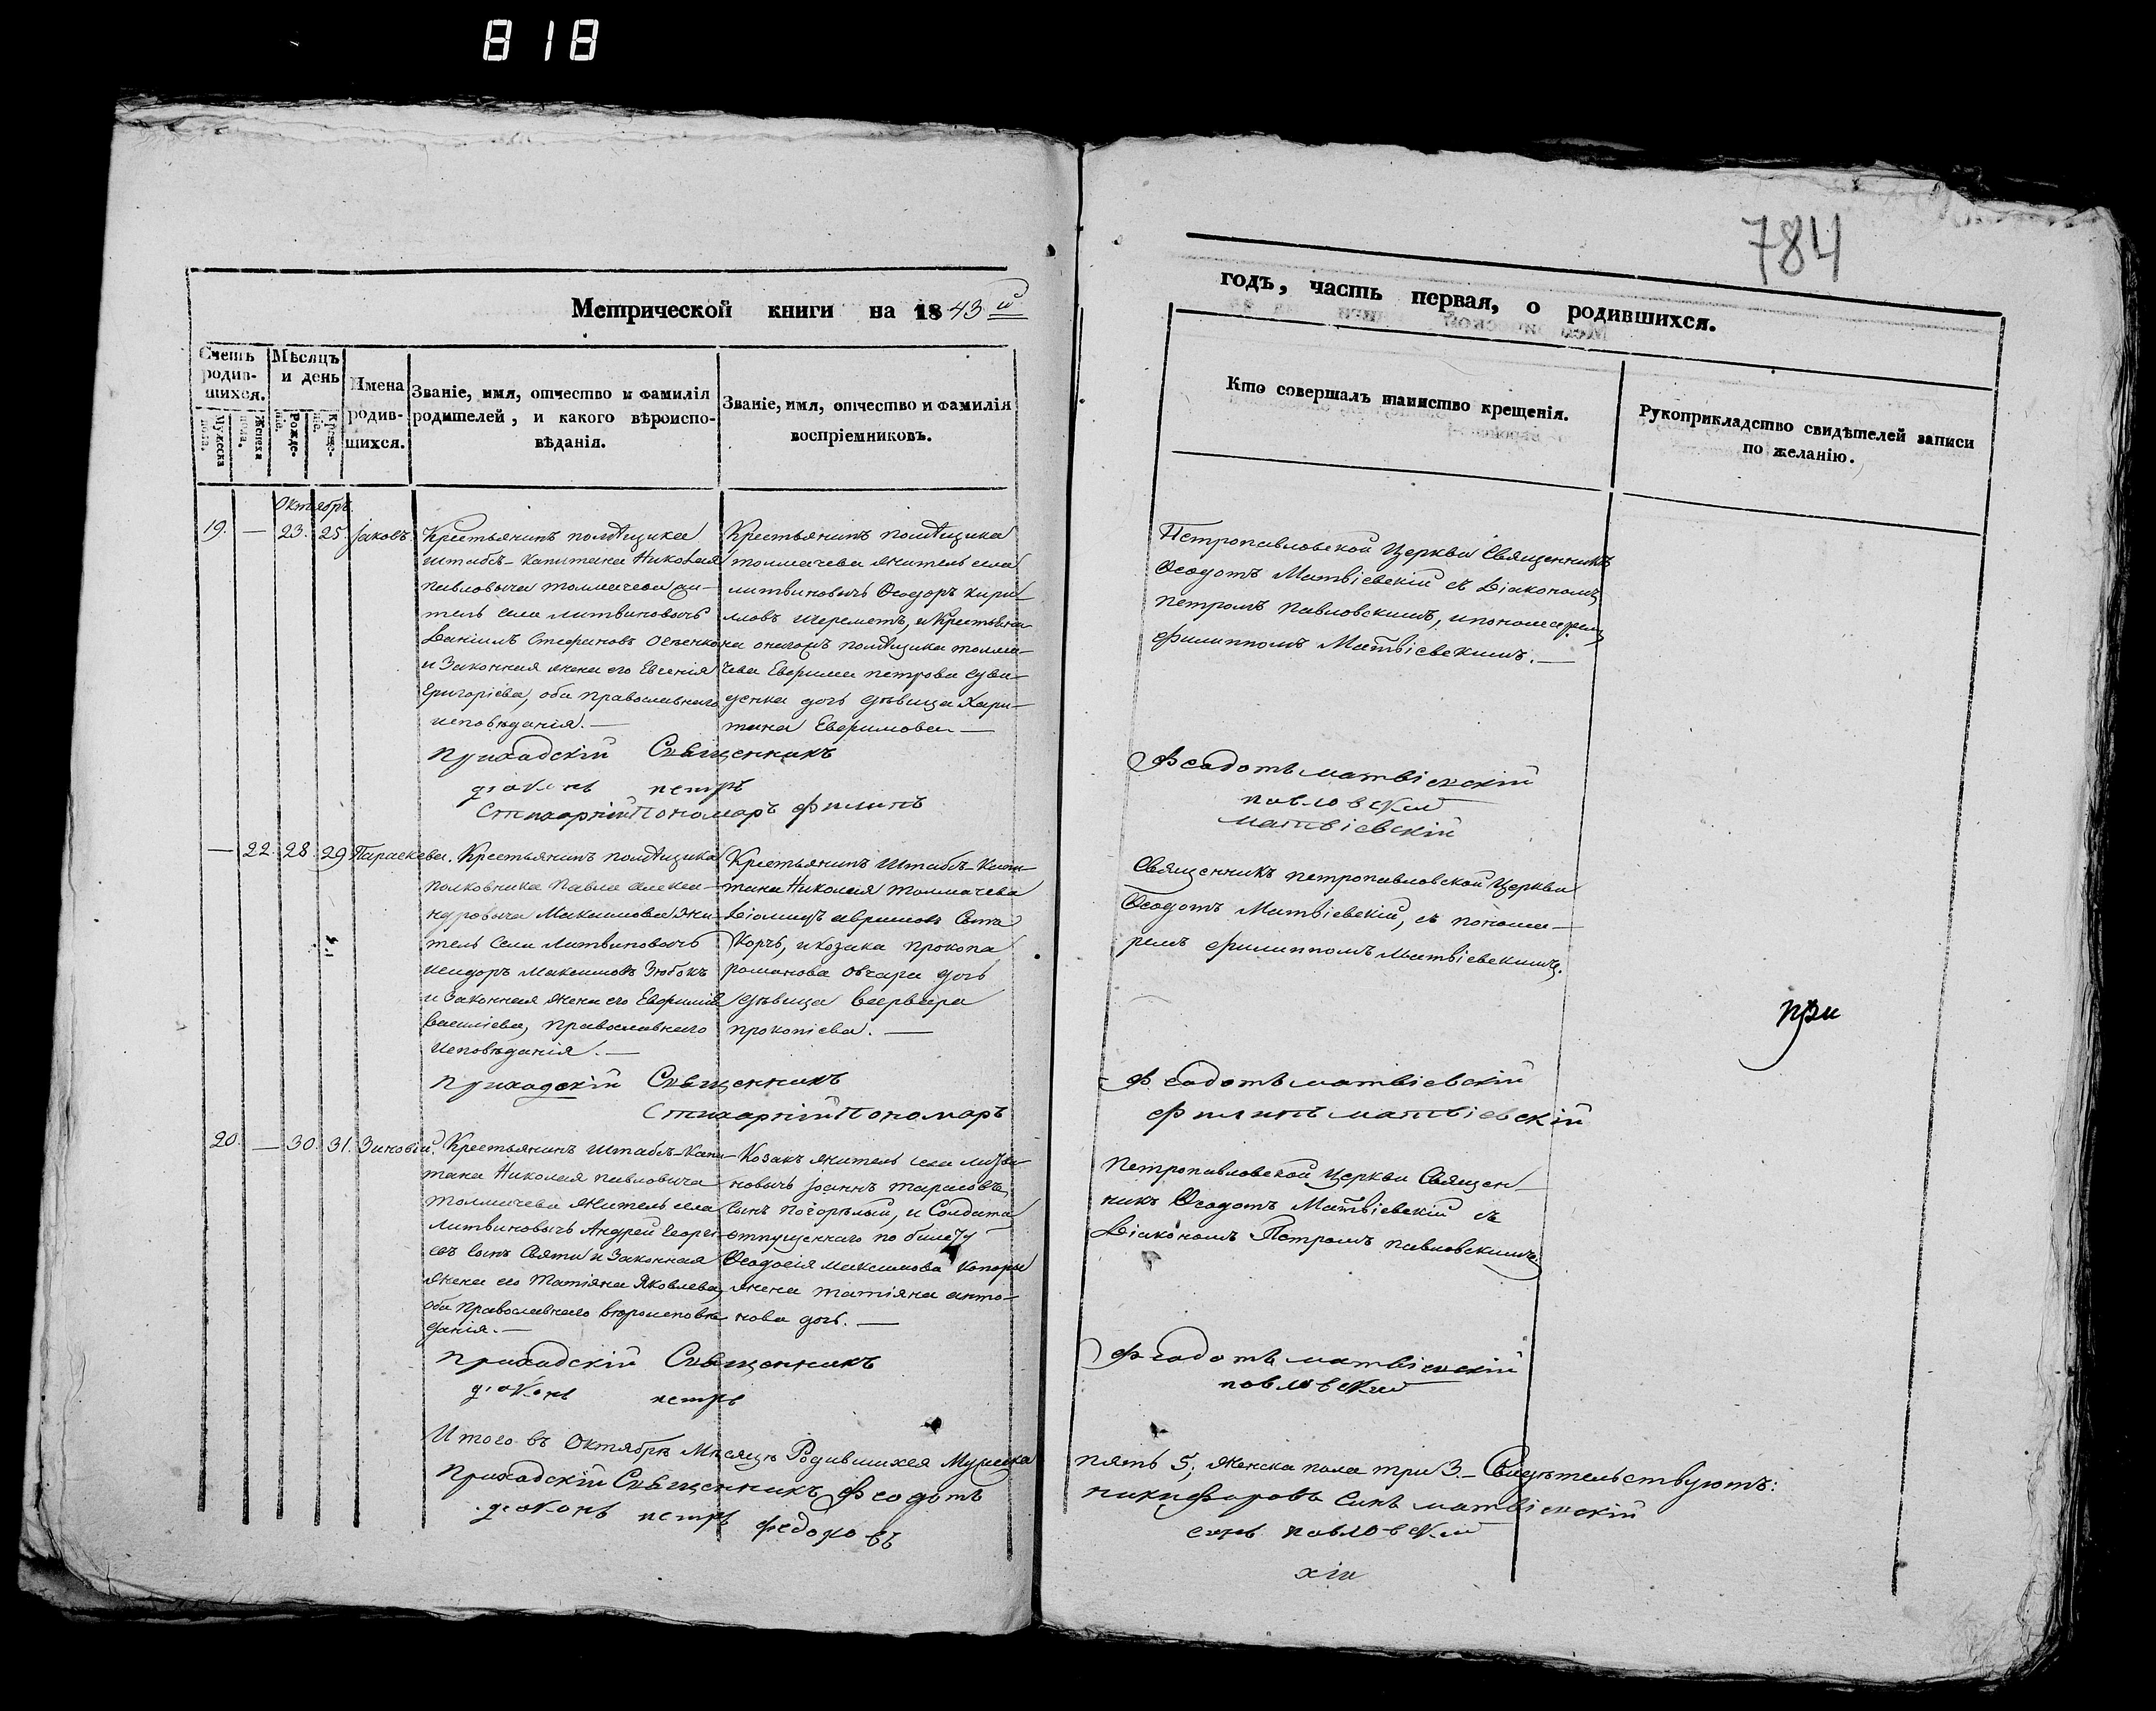 818
784
Метрической книги на 1843й
годъ, часть первая, о родившихся.
Счетъ родив-шихся.
Мужеска пола.
Женска пола.
Мѣсяцъ и день
Рожде-нія.
Креще-нія.
Имена родив-шихся.
Званіе, имя, отчество и фамилія родителей, и какого вѣроиспо-вѣданія.
Званіе, имя, отчество и фамилія воспріемниковъ.
Кто совершалъ таинство крещенія.
Рукоприкладство свидѣтелей записи по желанію.
Октябрь
19. — 23. 25. Іаковъ.
Крестьянинъ помѣщика
штабсъ-капитана Николая
Павловича Толмачева жи-
тель села Литвиновичъ
Даніилъ Стефановъ
и Законная жена его Евгенія
Григоріева, оба православнаго
исповѣданія. —
Крестьянинъ помѣщика
Толмачева житель села
Литвиновичъ Ѳеодоръ Кири-
ловъ Шереметъ, и Крестьяни-
на онагожъ помѣщика Толма-
чева Евфима Петрова
дочь дѣвица Хари-
тина Евфимова —
Петропавловской Церкви Священникъ
Ѳеодотъ Матвіевскій съ Діакономъ
Петромъ Павловскимъ, и пономаремъ
Филиппомъ Матвіевскимъ. —
Приходскій Священникъ Феодотъ Матвіевскій
діаконъ петръ павловскій
Стихарній Пономаръ Филипъ матвіевскій
— 22. 28. 29 Параскева.
Крестьянинъ помѣщика
полковника Павла Алекса-
ндровича Максимова жи-
тель села Литвиновичъ
Исидоръ Максимовъ Зюбокъ
и Законная жена его Евфимія
Василіева, православнаго
исповѣданія. —
Крестьянинъ Штабсъ-Капи-
тана Николая Толмачева
Діомидъ Абрамовъ сынъ
Корчъ, и козака Прокопа
Романова Овчара дочь
дѣвица Варвара
Прокопіева. —
Священникъ Петропавловской Церкви
Ѳеодотъ Матвіевскій, съ понома-
ремъ Филиппомъ Матвіевскимъ.
при
Приходскій Священникъ Феодотъ матвіевскій
Стихарній Пономаръ Филипъ матвіевскій
20. — 30. 31. Зиновій.
Крестьянинъ Штабсъ-Капи-
тана Николая Павловича
Толмачева житель села
Литвиновичъ Андрей Георгі-
евъ сынъ Свята и Законная
жена его Татіяна Яковлева,
оба Православнаго вѣроисповѣ-
данія. —
Козакъ житель села Литви-
новичъ Іоаннъ Тарасовъ
сынъ Погорѣлый, и Солдата
отпущеннаго по билету
Ѳеодосія Максимова
жена Татіяна Анто-
нова дочь. —
Петропавловской Церкви Священ-
никъ Ѳеодотъ Матвіевскій съ
Діакономъ Петромъ Павловскимъ.
Приходскій Священникъ Феодотъ матвіевскій
діаконъ петръ павловскій
Итого въ Октябрѣ Мѣсяцѣ Родившихся Мужеска пять 5, Женска пола три 3. — Свидѣтельствуютъ:
Приходскій Священникъ Феодотъ никифоровъ Синъ матвіевскій
діаконъ петръ федоровъ синъ павловскій